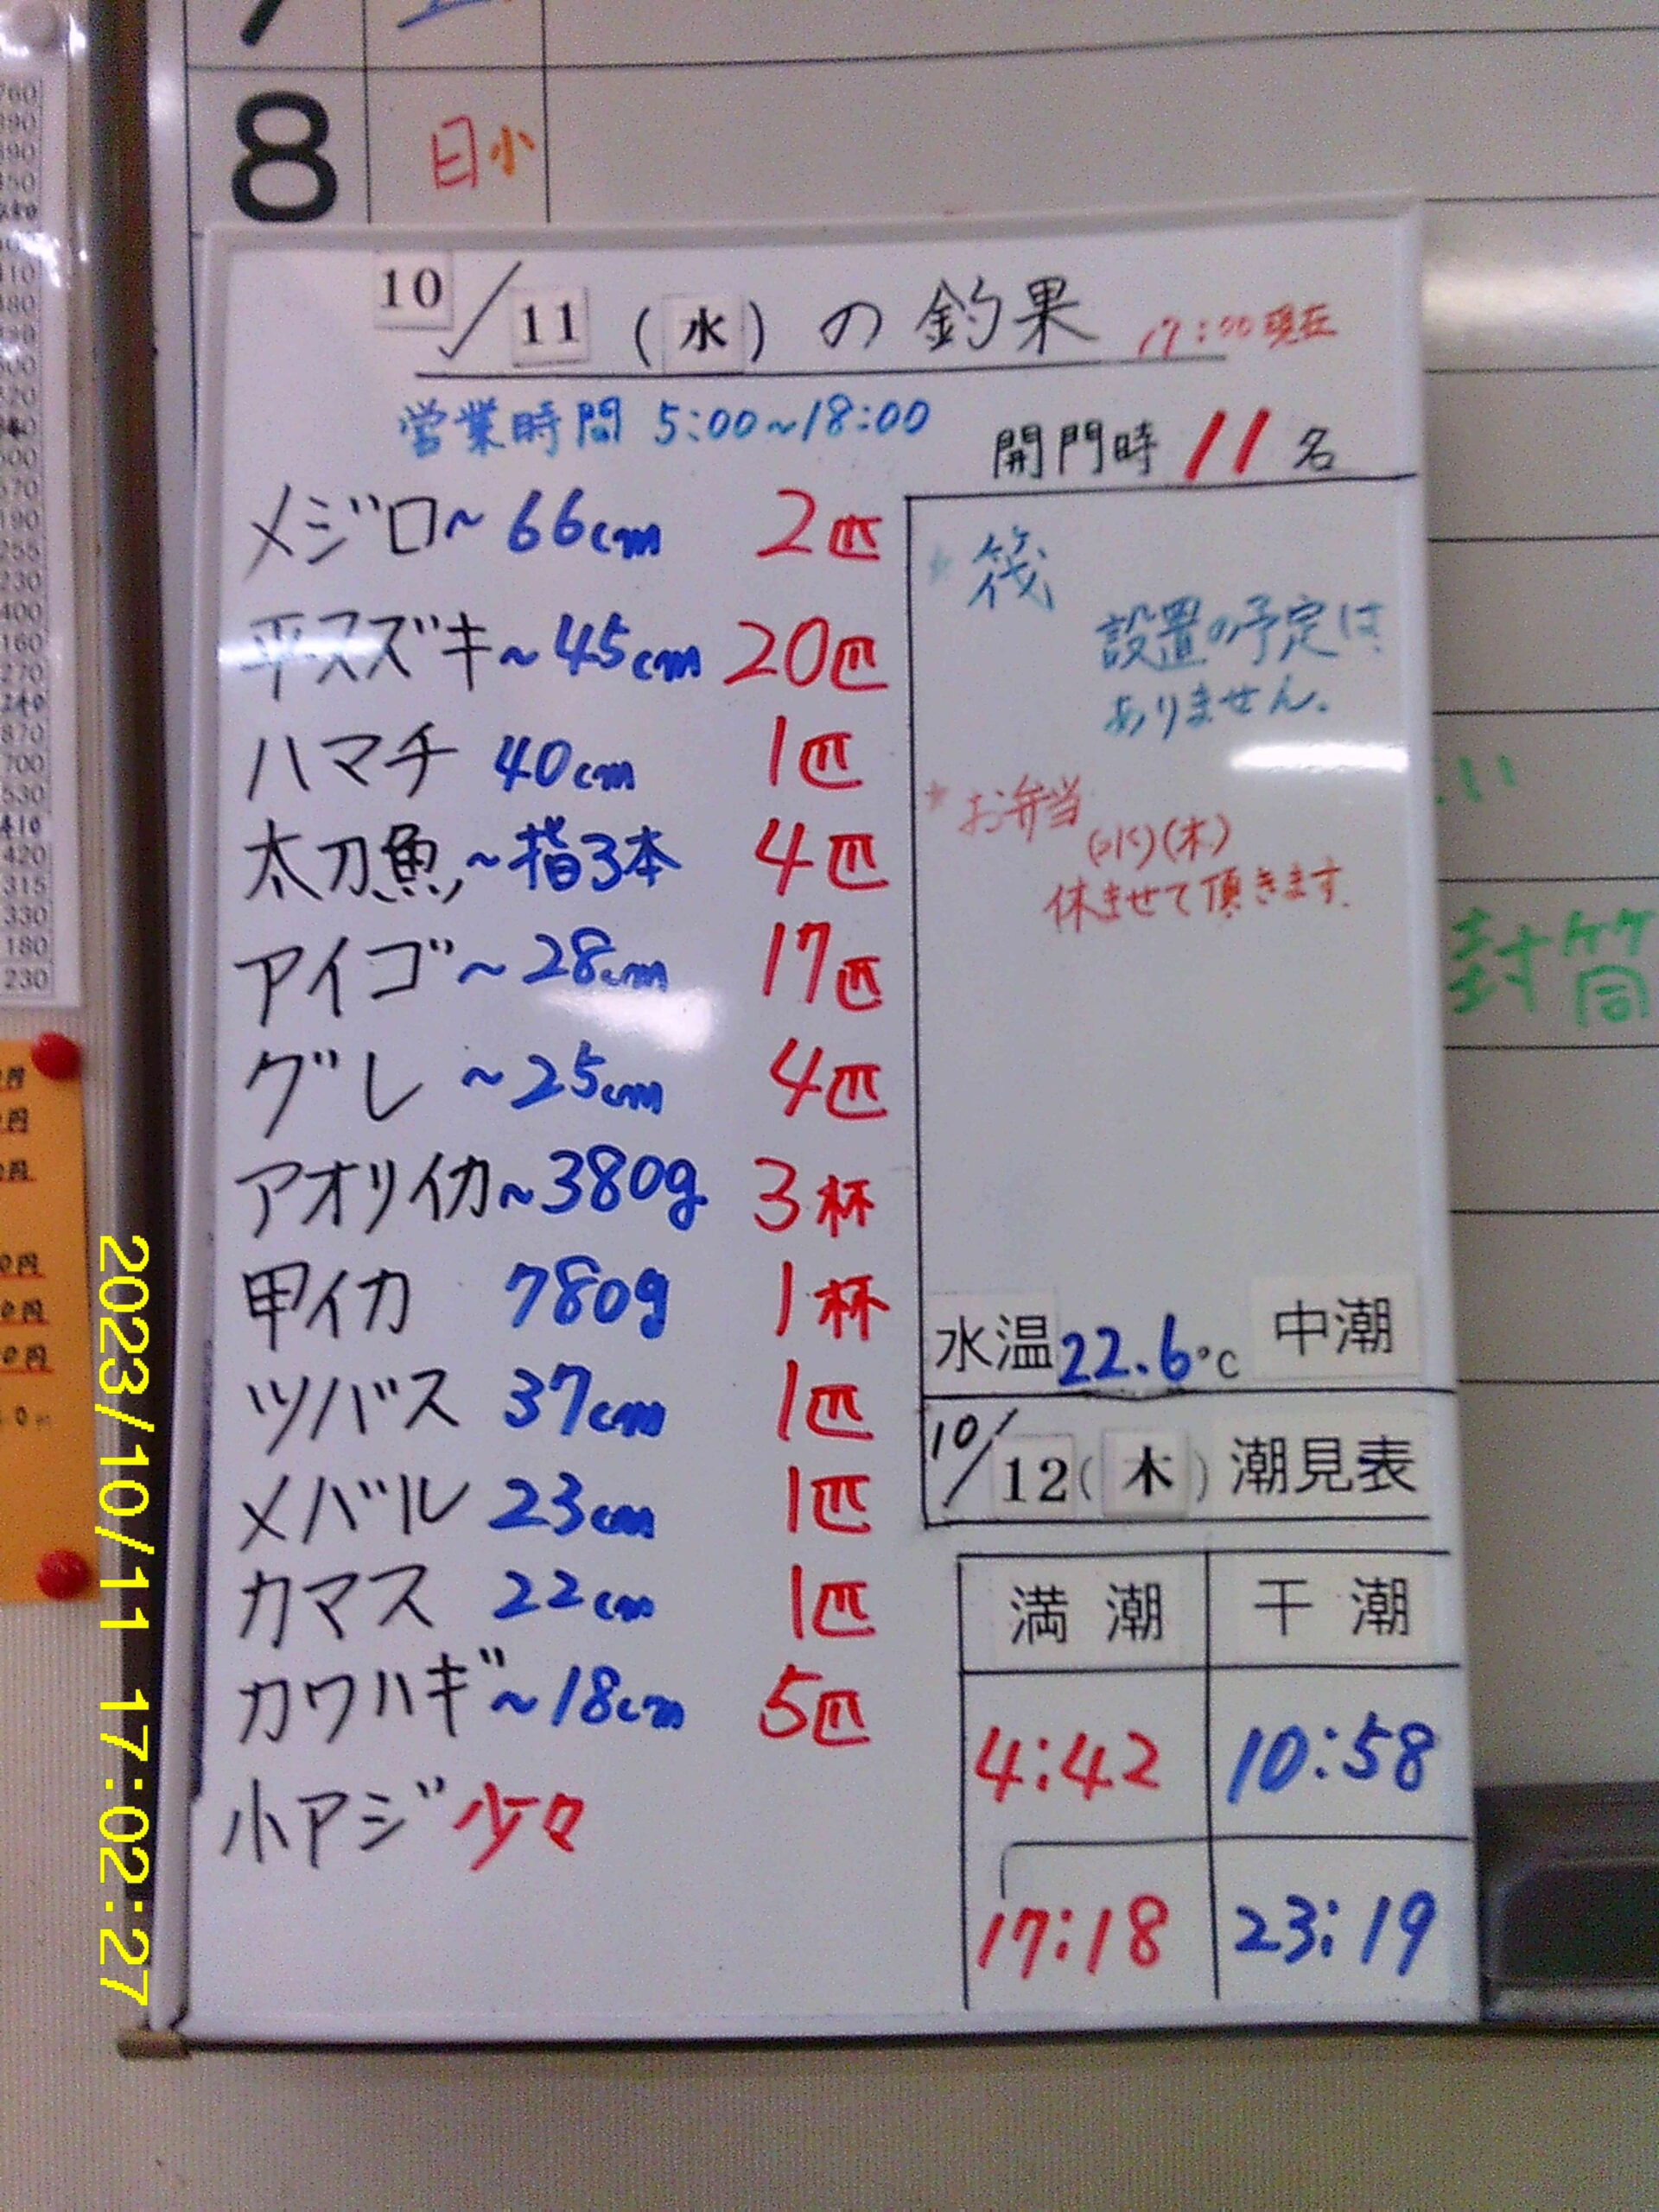 8 日 小
10/11(水)の釣果 17:00現在
営業時間 5:00~18:00
開門時 11名
メジロ~66cm 2匹
平スズキ~45cm 20匹
ハマチ 40cm 1匹
太刀魚~指3本 4匹
アイゴ~28cm 17匹
グレ~25cm 4匹
アオリイカ~380g 3杯
甲イカ 780g 1杯
ツバス 37cm 1匹
メバル 23cm 1匹
カマス 22cm 1匹
カワハギ~18cm 5匹
小アジ少々
*筏
設置の予定は
ありません。
*お弁当
(水)(木)
休ませて頂きます.
水温22.6℃ 中潮
10/12(木)潮見表
満潮 干潮
4:42 10:58
17:18 23:19
封筒
2023/10/11 17:02:27